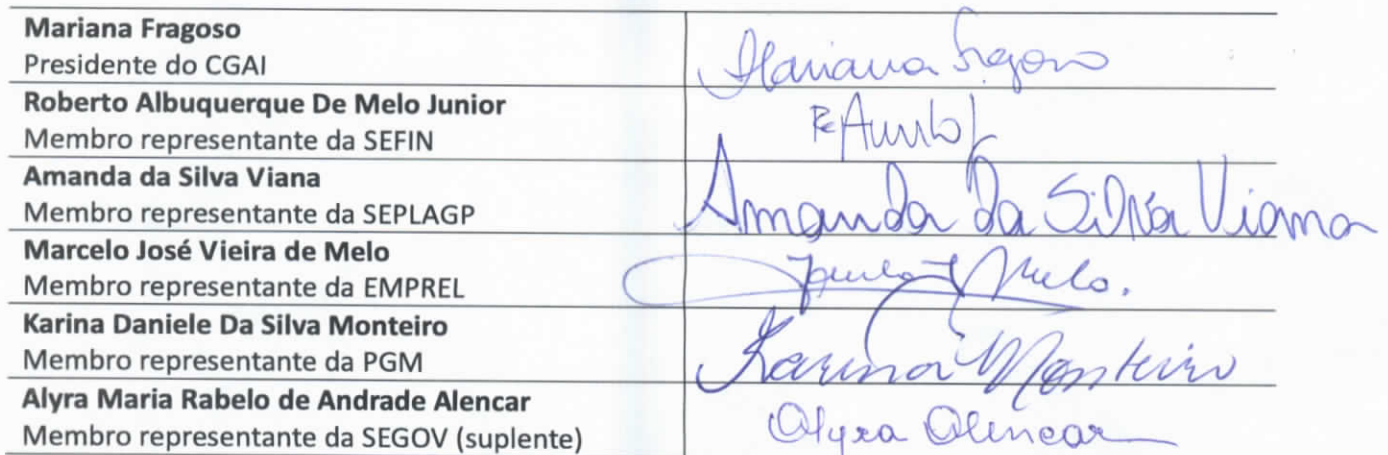 Mariana Fragoso
Presidente do CGAI
Mariana Fragoso
Roberto Albuquerque De Melo Junior
Membro representante da SEFIN
Amanda da Silva Viana
Membro representante da SEPLAGP
Amanda Da Silva Viana
Marcelo José Vieira de Melo
Membro representante da EMPREL
Melo.
Karina Daniele Da Silva Monteiro
Membro representante da PGM
Karina Monteiro
Alyra Maria Rabelo de Andrade Alencar
Membro representante da SEGOV (suplente)
Alyra Alencar